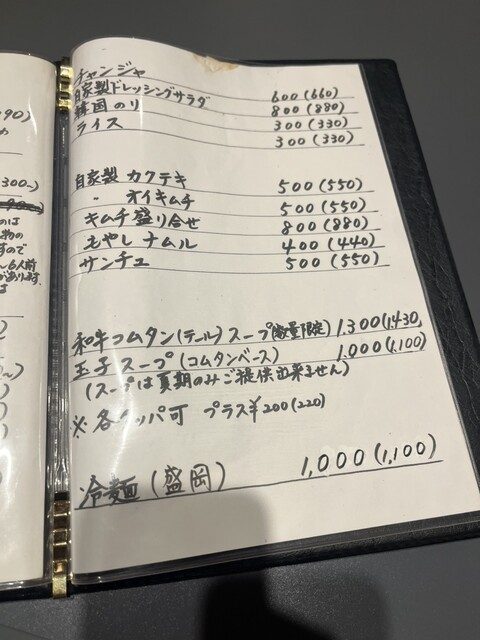 チャンジャ 600(660)
自家製ドレッシングサラダ 800(880)
韓国のり 300(330)
ライス 300(330)
自家製 カクテキ 500(550)
〃 オイキムチ 500(550)
キムチ盛り合せ 800(880)
もやしナムル 400(440)
サンチュ 500(550)
和牛コムタン(テール)スープ(数量限定) 1.300(1.430)
玉子スープ(コムタンベース) 1.000(1,100)
(スープは夏期のみご提供出来ません)
※各クッパ可 プラス¥200(220)
冷麺(盛岡) 1,000(1,100)
90)
300~)
のは
物の
すので
~6人前
があります
は